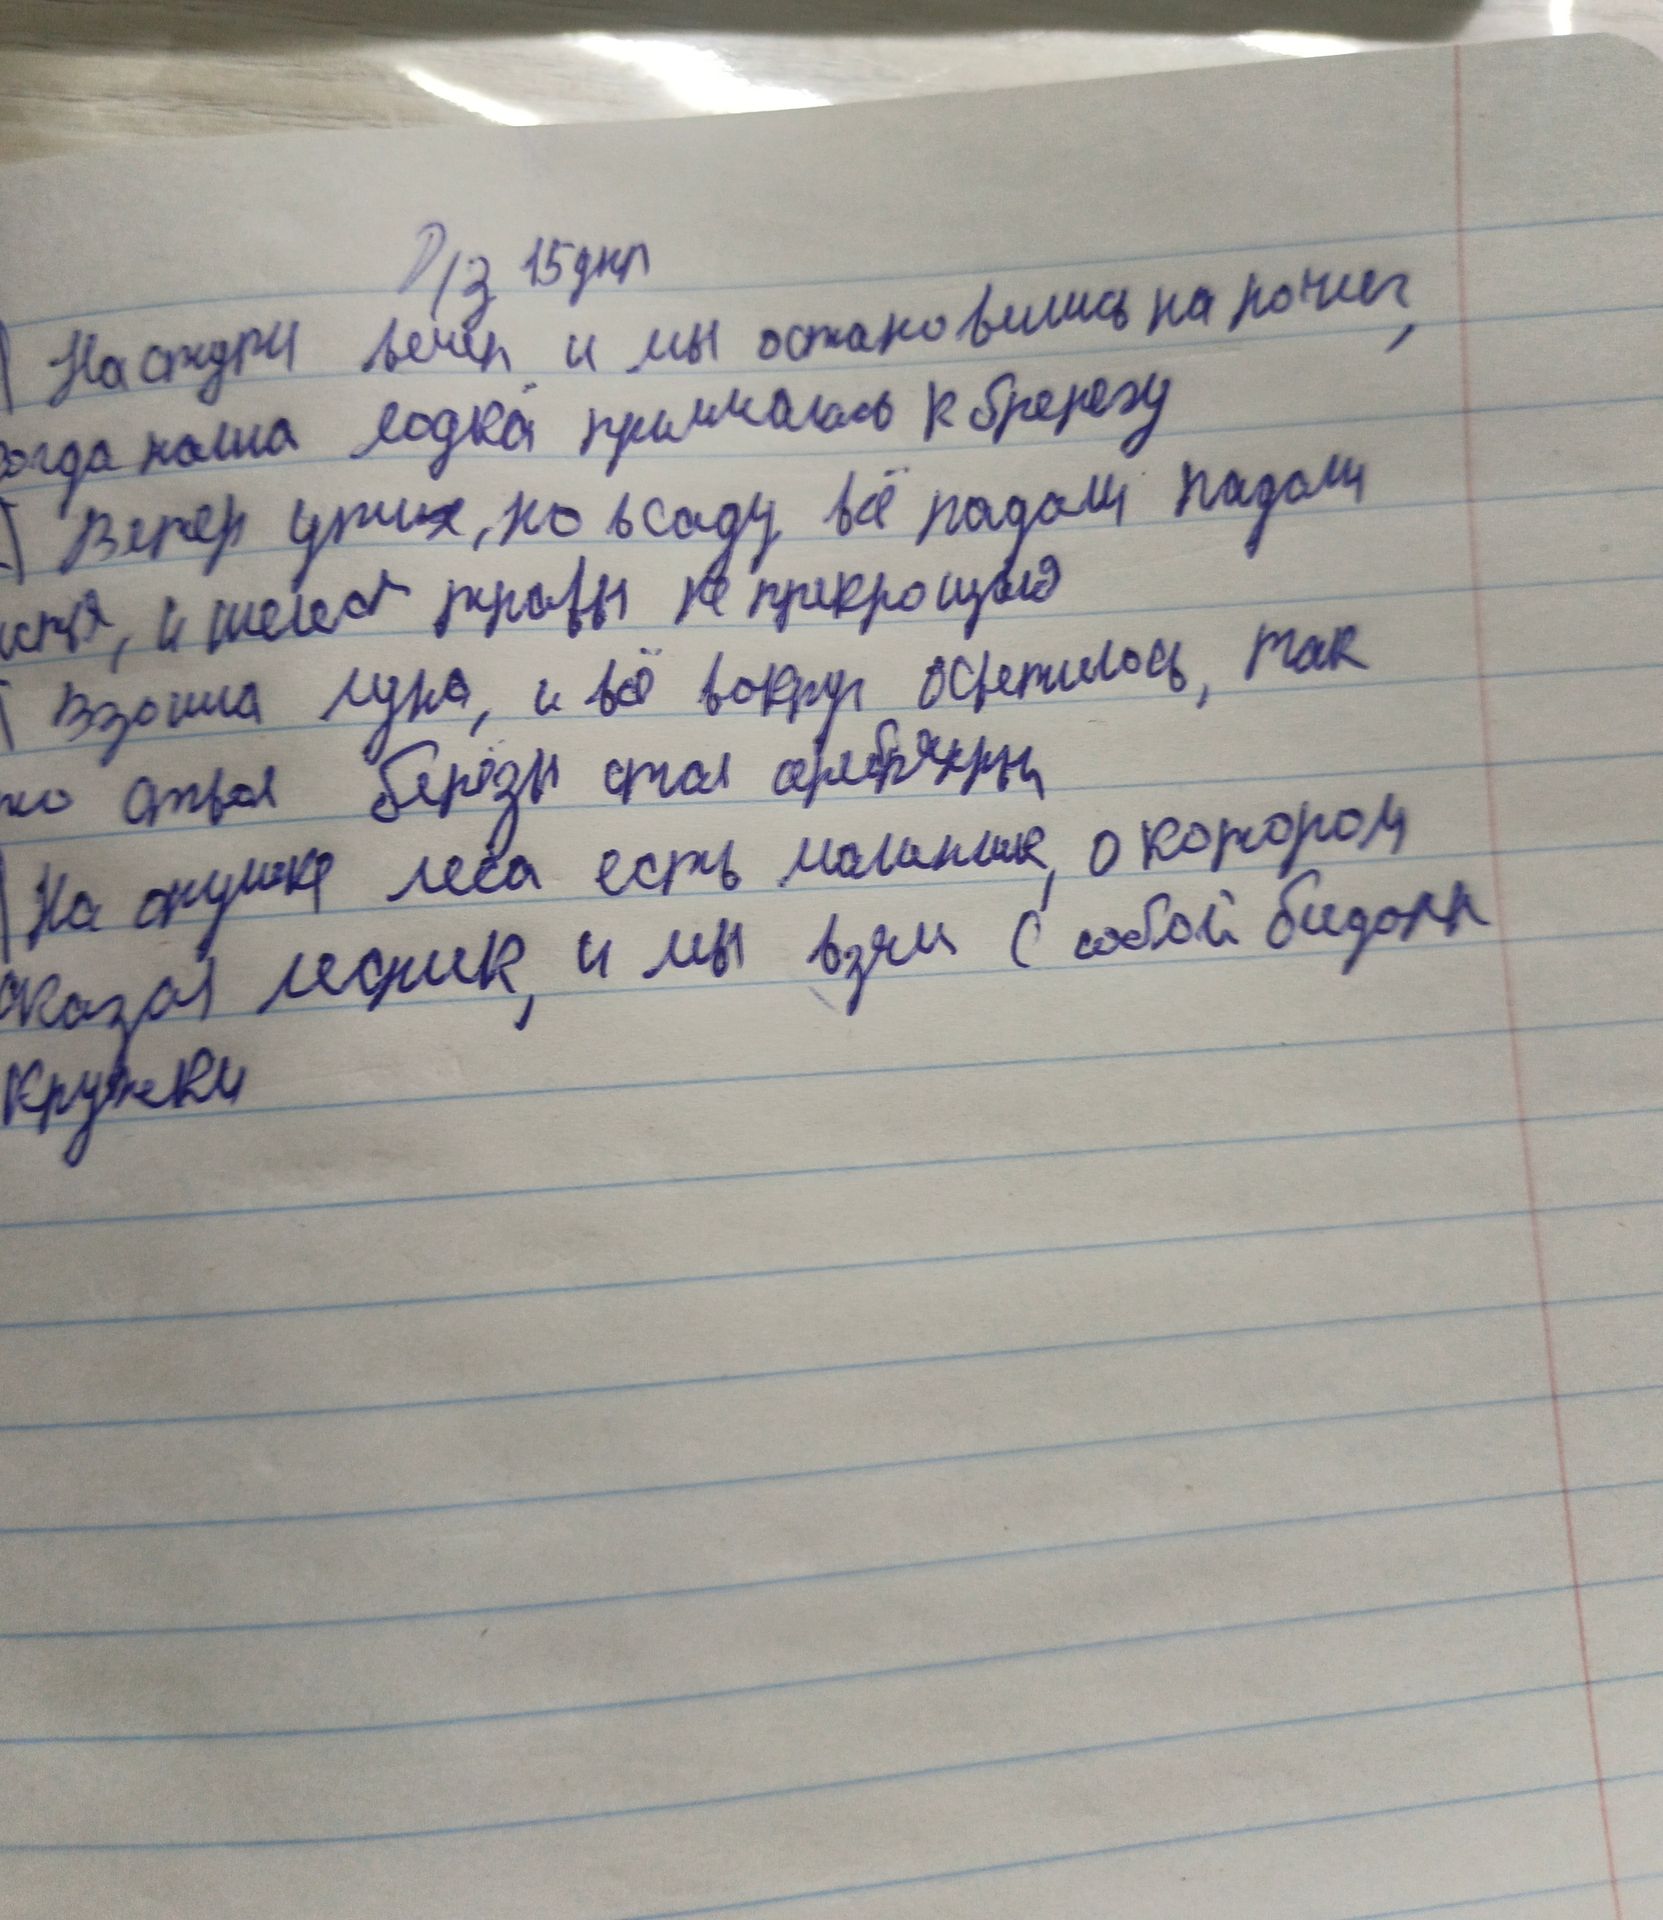 Д/з 15 дкр
Наступил вечер и мы остановились на ночлег,
огда наша лодка примчалась к береегу
Ветер утих, но в саду всё падали падали
истья, и шелест травы не прекращался
Взошла луна, и всё вокруг осветилось, так
то ствол берёзы стал серебряным
На опушке леса есть малинник, о котором
сказал лесник, и мы взяли с собой бидон и
кружки